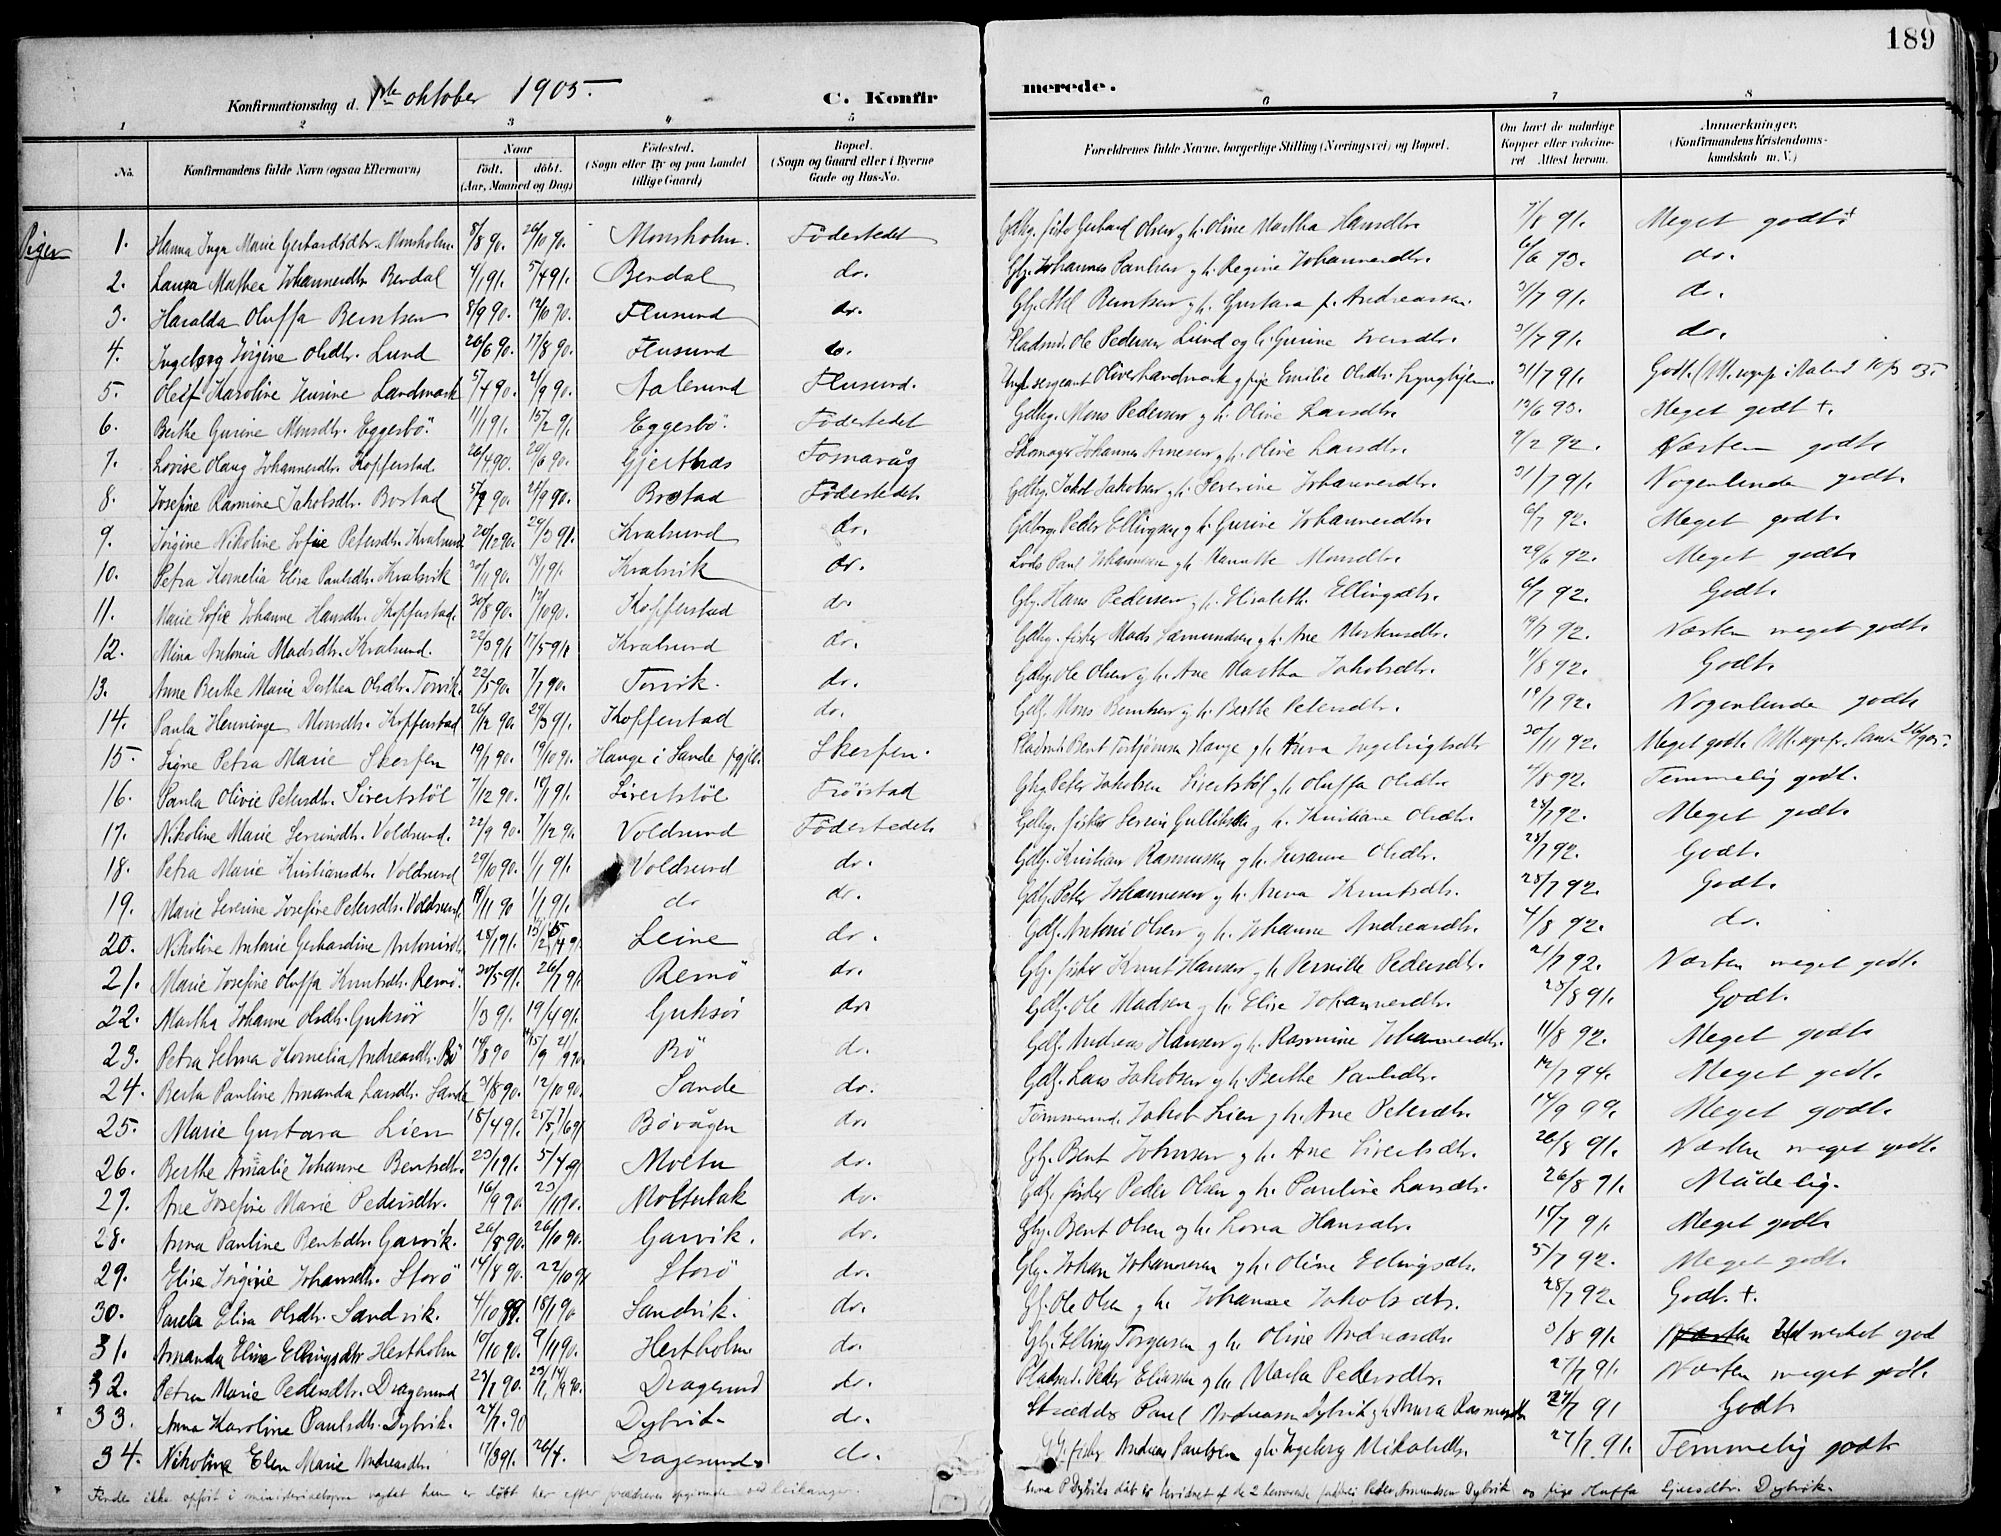 189
Konfirmationsdag d. 1ste oktober 1905.
C. Konfir
merede.
1 2 3 4 5 6 7 8
No. Konfirmandens fulde Navn (ogsaa Efternavn) Naar født. døbt. (Aar, Maaned og Dag) Fødested. (Sogn eller By og paa Landet tillige Gaard) Bopæl. (Sogn og Gaard eller i Byerne Gade og Hus-No. Forældrenes fulde Navne, borgerlige Stilling (Næringsvei) og Bopæl. Om havt de naturlige Kopper eller vakcineret Attest herom. Anmærkninger. (Konfirmandens Kristendomskundskab m. V.)
Piger
1. Hanna Inga Marie Gerhardsdtr. Monsholm. 8/8 90. 26/10 90. Monsholm. Fødestedet Gdbg. fisk Gerhard Olsen g h. Oline Martha Hansdtr. 7/8 91. Meget godt +
2. Laura Mathea Johannesdtr. Berdal 4/1 91. 5/4 91. Berdal do. Gbg. Johannes Paulsen g h. Regine Johannesdtr. 6/6 93. do.
3. Haralda Oluffa Berntsen 8/9 90. 12/10 90. Flusund do. Berntsen g h. Gustava f. Andreassen. 31/7 91. do.
4. Ingeborg Jørgine Olsdtr. Lund 26/6 90. 17/8 90. Flusund do. Pladsmd. Ole Pedersen Lund og h. Gurine Iversdtr. 31/7 91. do.
5. Karoline Landmark 5/4 90. 2/9 90. Aalesund Flusund. sergeant Oliver Landmark g pige Emilie Olsdtr. 31/7 91. Godt.
6. Berthe Gurine Monsdtr. Eggesbø. 11/1 91. 15/2 91. Eggesbø. Fødestedet Gdbg. Mons Pedersen g h. Oline Larsdtr. 13/6 93. Meget godt +.
7. Lovise Olaug Johannesdtr. Kopperstad 26/4 90. 29/6 90. Gjertnes Tomavåg Skomager Johannes Arnesen g h. Oline Larsdtr. 9/2 92. Næsten godt
8. Josefine Rasmine Jakobsdtr. Bostad 5/7 90. 21/9 90. Bostad Fødestedet Gdbg. Jakob Jakobsen g h. Severine Johannesdtr. 31/7 91. Nogenlunde godt.
9. Jørgine Nikoline Sofie Petersdtr. Kvalsund 20/12 90. 29/3 91. Kvalsund do. Gdbg. Peder Ellingsen g h. Gurine Johannesdtr. 6/7 92. Meget godt.
10. Petra Kornelia Elisa Paulsdtr. Kvalsvik 30/11 90. 18/1 91. Kvalsvik do. Lods Paul Johannesen g h. Monsdtr. 29/6 92. Meget godt
11. Marie Sofie Johanne Hansdtr. Kopperstad. 30/8 90. 12/10 90. Kopperstad do. Gbg. Hans Pedersen g h. Elisabeth Ellingsdtr. 6/7 92. Godt.
12. Mina Antonia Madsdtr. Kvalsund. 22/3 91. 17/5 91. Kvalsund do. Gdbg. fisker Mads Sæmundsen g h. Ane Mortensdtr. 19/7 92. Næsten meget godt
13. Anne Berthe Marie Dorthea Olsdtr. Torvik. 22/5 90. 7/7 90. Torvik. do. Gdbg. Ole Olsen g h. Ane Martha Jakobsdtr. 11/8 92. Godt.
14. Paula Henninge Monsdtr. Kopperstad 26/12 90. 29/3 91. Kopperstad do. Gdbg. Mons Berntsen g h. Berthe Petersdtr. 19/7 92. Nogenlunde godt
15. Signe Petra Marie Skorpen 19/7 90. 19/10 90. Hauge i Sande prgjld. Skorpen. Pladsmd. Bent Torbjørnsen Hauge g h. Anna Ingebrigtsdtr 30/11 92. Meget godt.
16. Paula Olivie Petersdtr. Sivertstøl 7/12 90. 18/1 91. Sivertstøl Frøistad Gbg. Peter Jakobsen Sivertstøl g h. Oluffa Olsdtr. 4/8 92. Temmelig godt.
17. Nikoline Marie Severinsdtr. Voldsund. 22/9 90. 7/12 90. Voldsund Fødestedet Gdbg. fisker Severin Gulliksen g h. Kristiane Olsdtr. 28/7 92. Meget godt.
18. Petra Marie Kristiansdtr. Voldsund 29/10 90. 1/1 91. Voldsund do. Gdbg. Kristian Rasmussen g h. Susanne Olsdtr. 28/7 92. Godt.
19. Marie Severine Josefine Petersdtr. Voldsund. 19/11 90 1/1 91. do do. Gdbg. Peter Johannesen g h. Anna Knutsdtr. 28/7 92. Godt.
20. Nikoline Antonie Gerhardine Antonisdtr. 28/1 91. Leine do. Gdbg. Antoni Olsen g h. Johanne Andreasdtr. 4/8 92. do.
21. Marie Josefine Oluffa Knutsdtr. Remø. 30/5 91. 26/7 91. Remø do. Gbg. fisker Knut Hansen g h. Pernille Pedersdtr. 21/7 92. Næsten meget godt.
22. Martha Johanne Olsdtr. Gurskør 1/3 91. 19/4 91. Gurskør do. Gdbg. Ole Madsen g h. Elise Johannesdtr. 25/8 91. Godt.
23. Petra Selma Kornelia Andreasdtr. Bø 14/8 90 21/9 90. Bø do. Gdbg. Andreas Hansen g h. Rasmine Johannesdtr. 11/8 92. Meget godt
24. Berta Pauline Amanda Larsdtr. Sande 31/8 90. 12/10 90. Sande do. Gdbg. Lars Jakobsen g h. Berthe Paulsdtr. 12/7 94. Meget godt.
25. Marie Gustava Lien 18/4 91. 25/5, 7/6 91 Bøvågen do. Tømmermd. Jakob Lien g h. Ane Petersdtr. 14/9 99. Meget godt.
26. Berthe Amalie Johanne Bentsdtr. 23/1 91. 5/4 91 Moltu do. Gbg. Bent Johnsen g h. Ane Sivertsdtr. 26/8 91. Næsten meget godt.
27. Ane Josefine Marie Pedersdtr. 16/9 90. 23/11 90. Moltubak do. Gdbg. fisker Peder Olsen g h. Pauline Larsdtr. 26/8 91. Mådelig.
28. Anna Pauline Bentsdtr. Garvik. 26/8 90. 26/10 90. Garvik. do. Gbg. Bent Olsen g h. Lova Hansdtr. 15/7 91. Meget godt
29. Elise Jørgine Johansdtr. Storø 14/8 90. 22/10 90 Storø do. Gbg. Johan Johannesen g h. Oline Ellingsdtr. 5/7 92. Meget godt.
30. Paula Elisa Olsdtr. Sandvik. 4/10 89. 18/1 90 Sandvik. do. Gbg. Ole Olsen g h. Johanne Jakobsdtr. 28/7 92. Godt. +.
31. Amanda Eline Ellingsdtr Hestholm 10/10 90. 9/11 90. Hestholm do. Gbg. Elling Torgersen g h. Oline Andreasdtr. 3/8 91. Udmerket god
32. Petra Marie Pedersdtr. Dragesund 23/7 90. Dragesund do. Pladsmd. Peder Eliassen g h. Marta Pedersdtr. 27/7 91. Næsten meget godt.
33. Anna Karoline Paulsdtr. Dybvik. 27/7. 90 Dybvik do. Skrædder Paul Andreassen Dybvik g h Anna Rasmusdtr 27/7 91 Godt
34. Nikoline Elen Marie Andreasdtr. 17/3 91. 26/4. Dragesund do. fisker Andreas Paulsen g h. Ingeborg Nikolsdtr. 27/7 91. Temmelig godt
Findes ikke opført i ministerialbogen uagtet hun er døbt her efter forældrenes opgivende ved Leikanger.
Anna P Dybviks dåb er bevidnet af de 2 faddere Peder Amundsen Dybvik og pige Oluffa Dybvik.